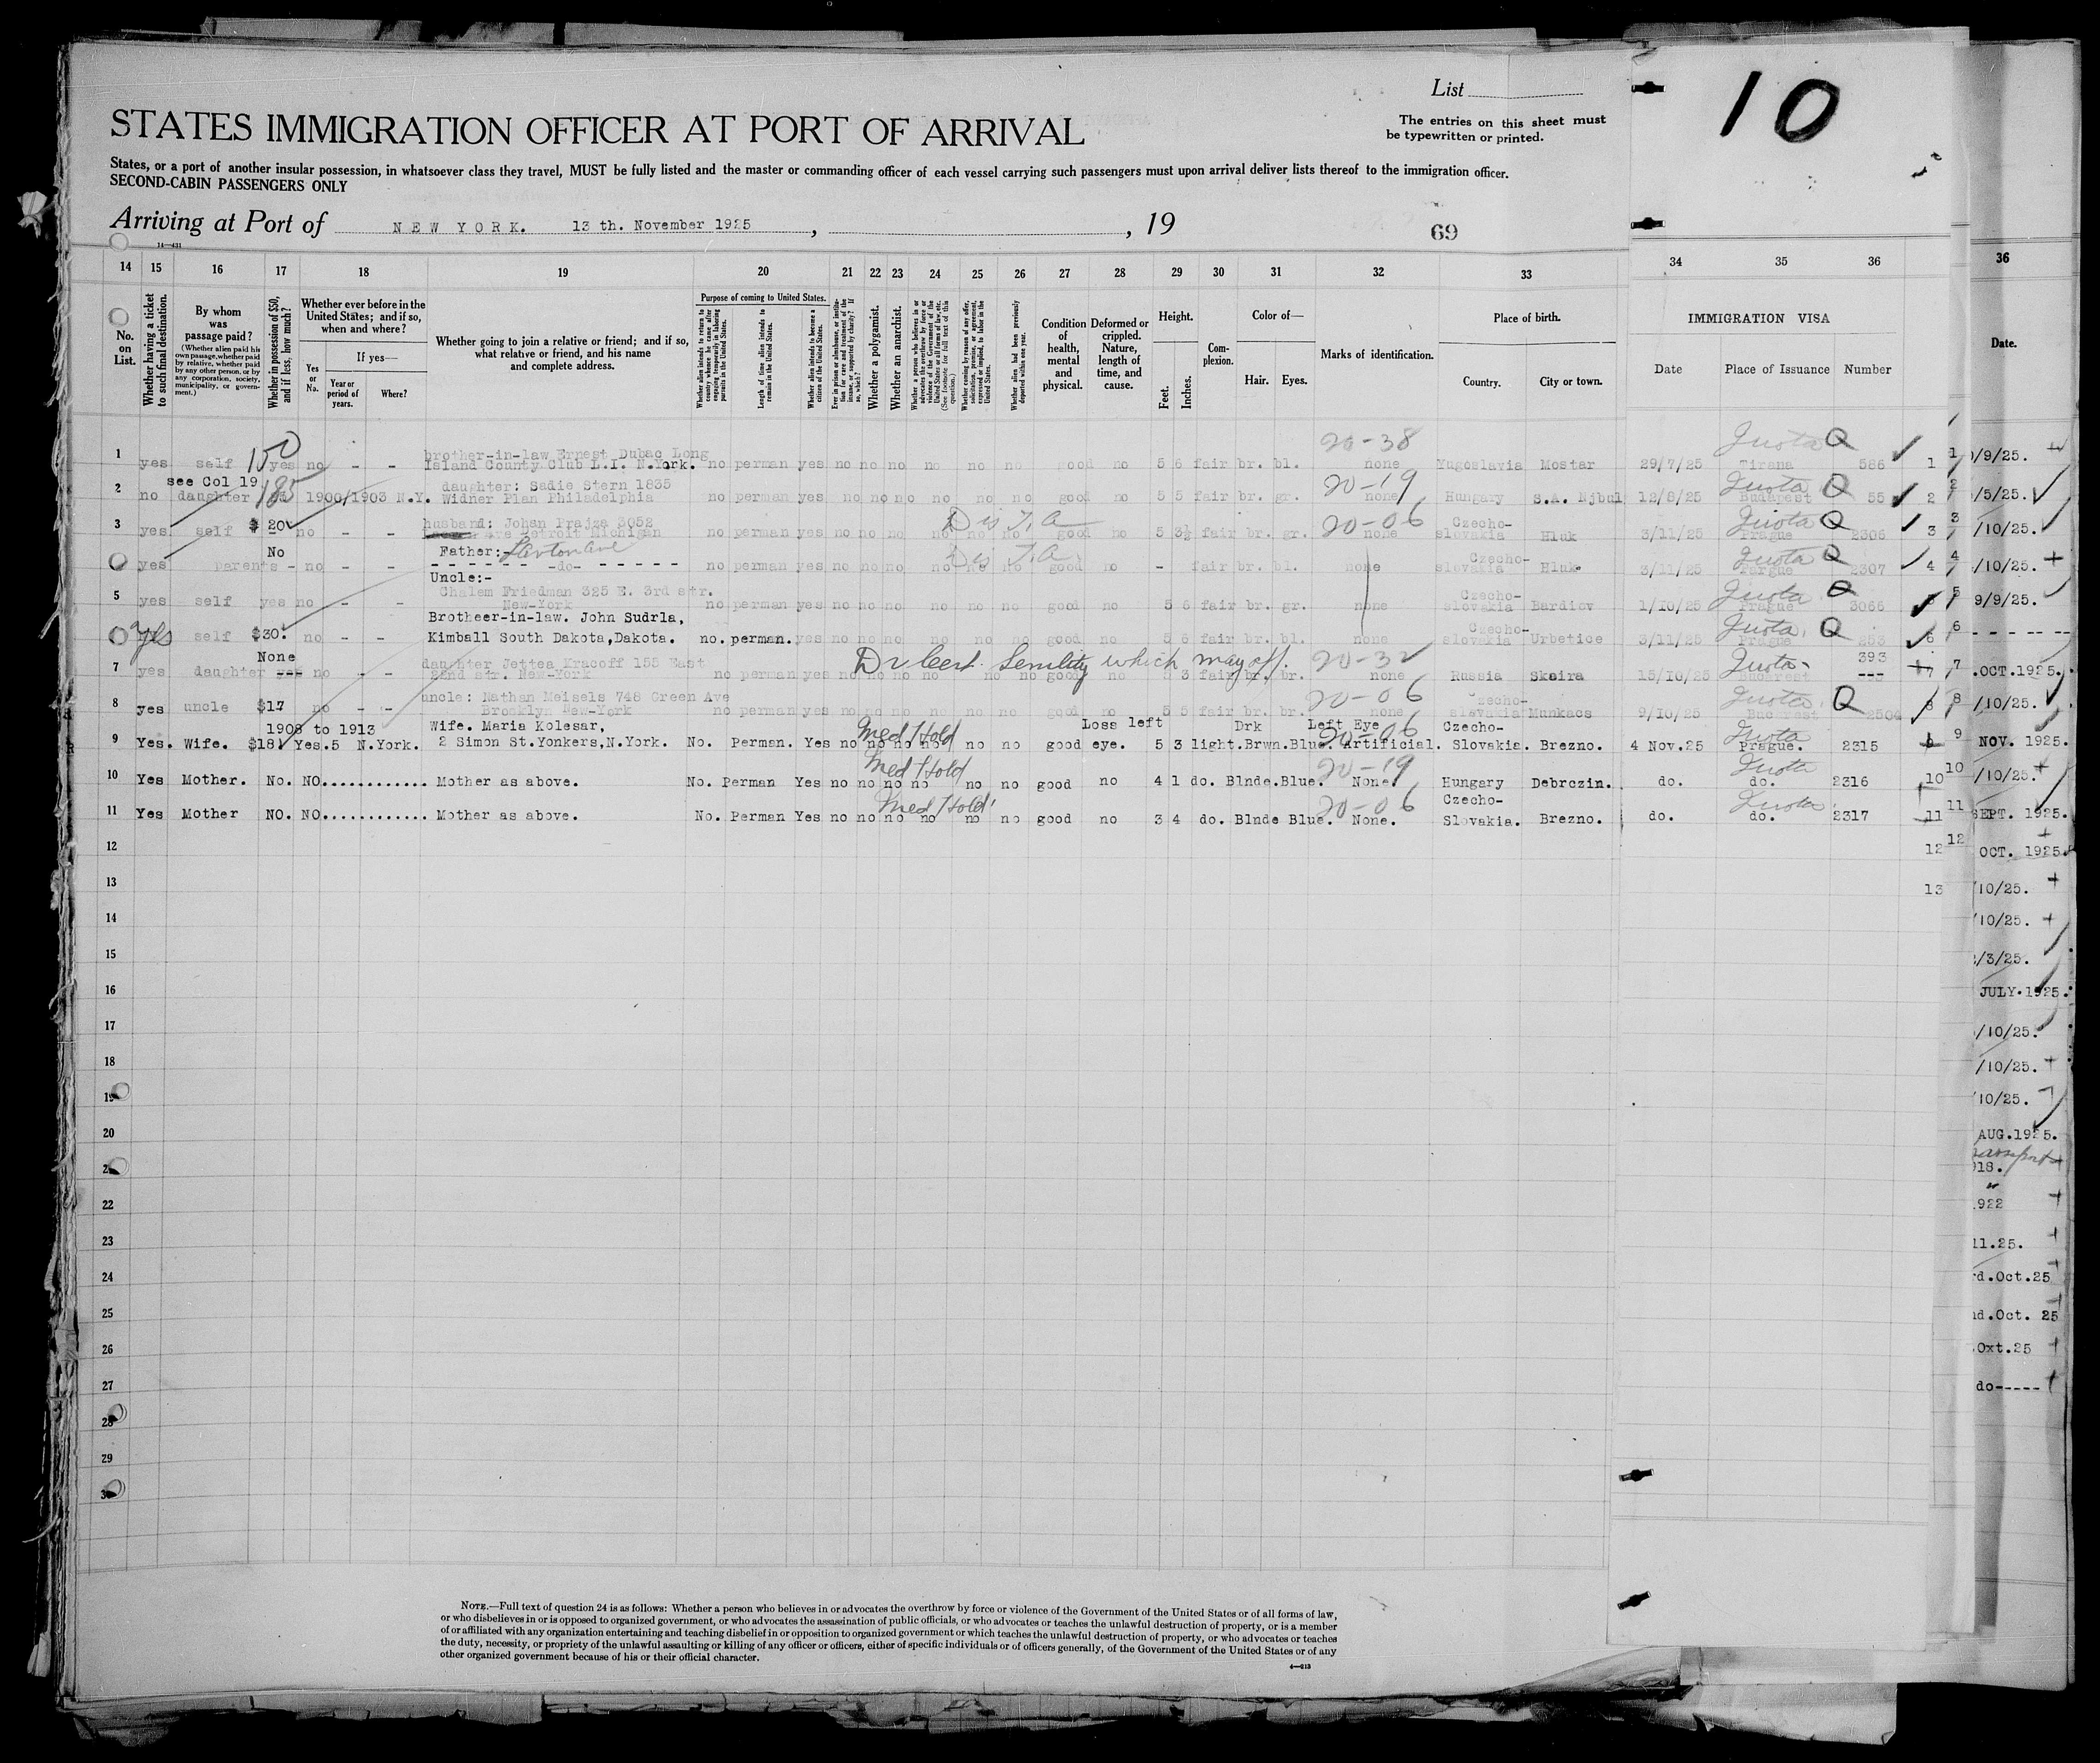 10
List
STATES IMMIGRATION OFFICER AT PORT OF ARRIVAL
The entries on this sheet must
be typewritten or printed.
States, or a port of another insular possession, in whatsoever class they travel, MUST be fully listed and the master or commanding officer of each vessel carrying such passengers must upon arrival deliver lists thereof to the immigration officer.
SECOND-CABIN PASSENGERS ONLY
Arriving at Port of NEW YORK. 13 th. November 1925 , , 19
69
14—431
14 15 16 17 18 19 20 21 22 23 24 25 26 27 28 29 30 31 32 33 34 35 36 36
No. on List.
Whether having a ticket to such final destination.
By whom was passage paid?
(Whether alien paid his own passage, whether paid by relative, whether paid by any other person, or by any corporation, society, municipality, or government.)
Whether in possession of $50, and if less, how much?
Whether ever before in the United States; and if so, when and where?
Yes or No.
If yes—
Year or period of years.
Where?
Whether going to join a relative or friend; and if so, what relative or friend, and his name and complete address.
Purpose of coming to United States.
Whether alien intends to return to country whence he came after engaging temporarily in laboring pursuits in the United States.
Length of time alien intends to remain in the United States.
Whether alien intends to become a citizen of the United States.
Ever in prison or almshouse, or institution for care and treatment of the insane, or supported by charity? If so, which?
Whether a polygamist.
Whether an anarchist.
Condition of health, mental and physical.
Deformed or crippled. Nature, length of time, and cause.
Height.
Feet.
Inches.
Complexion.
Color of—
Hair.
Eyes.
Marks of identification.
Place of birth.
Country.
City or town.
IMMIGRATION VISA
Date Place of Issuance Number
Date.
1 yes self 150 yes no - - brother-in-law Ernest Dubac Long
Island County Club L.I. N.York. no perman yes no no no no no no good no 5 6 fair br. bl. 20-38 none Yugoslavia Mostar 29/7/25 Tirana Quota Q 586 1
see Col 19
2 no daughter 185 1900/1903 N.Y. daughter: Sadie Stern 1835
Widner Plan Philadelphia no perman yes no no no no no no good no 5 5 fair br. gr. 20-19 none Hungary S.A. Njbul 12/8/25 Budapest Quota Q 55 2
3 yes self $ 20 no - - husband: Johan Prajza 3052
Ave Detroit Michigan no perman yes no no no no no no good no 5 3½ fair br. gr. 20-06 none Czecho-
slovakia Hluk 3/11/25 Prague Quota Q 2306 3
Dis T.A
yes parents No - no - - Father:- Laxton ave
-do- no perman yes no no no no no no good no - fair br. bl. none Czecho-
slovakia Hluk 3/11/25 Pargue Quota Q 2307 4
Dis T.A.
5 yes self yes no - - Uncle:-
Chalem Friedman 325 E. 3rd str.
New-York no perman yes no no no no no no good no 5 6 fair br. gr. none Czecho-
slovakia Bardiov 1/10/25 Prague Quota Q 3066
yes self $30. no - - Brotheer-in-law. John Sudrla,
Kimball South Dakota,Dakota. no. perman. yes no no no no no no good no 5 6 fair br. bl. none Czecho-
slovakia Urbetice 3/11/25 Prague Quota Q 253 6
7 yes daughter None yes no - - daughter Jettea Kracoff 155 East
22nd str. New-York no perman yes no no no no no no good no 5 3 fair br. br. 20-32 none Russia Skaira 15/10/25 Bucarest Quota 393 --- 7
Dr Cert. Senility which may aff.
8 yes uncle $17 no - - uncle: Nathan Meisels 748 Green Ave
Brooklyn New-York no perman yes no no no no no no good no 5 5 fair br. br. 20-06 none Czecho-
slovakia Munkacs 9/10/25 Bucarest Quota Q 2504 8
9 Yes. Wife. $18. 1908 to 1913 Yes.5 N.York. Wife. Maria Kolesar,
2 Simon St.Yonkers,N.York. No. Perman. Yes no no no no no no good Loss left eye. 5 3 light. Drk Brwn.Blue. Left Eye Artificial. 20-06 Czecho-
Slovakia. Brezno. 4 Nov.25 Prague. Quota 2315
Med Hold
10 Yes Mother. No. NO............ Mother as above. No. Perman Yes no no no no no no good no 4 1 do. Blnde.Blue. 20-19 None Hungary Debrczin. do. do. Quota 2316 10
Med Hold
11 Yes Mother NO. NO............ Mother as above. No. Perman Yes no no no no no no good no 3 4 do. Blnde Blue. 20-06 None. Czecho-
Slovakia. Brezno. do. do. Quota 2317 11
Med Hold
12 12
13 13
14
15
16
17
18
19
20
22
23
24
25
26
27
28
29
/9/25.
/5/25.
/10/25.
/10/25.
9/9/25.
- - - - - -
.OCT.1925.
/10/25.
NOV. 1925.
/10/25.
SEPT. 1925.
OCT. 1925.
/10/25.
/10/25.
/3/25.
JULY.1925.
/10/25.
/10/25.
/10/25.
AUG.1925.
918.
1922
11.25.
rd.Oct.25
nd.Oct. 25
.Oxt.25
do-----
NOTE.—Full text of question 24 is as follows: Whether a person who believes in or advocates the overthrow by force or violence of the Government of the United States or of all forms of law,
or who disbelieves in or is opposed to organized government, or who advocates the assassination of public officials, or who advocates or teaches the unlawful destruction of property, or is a member
of or affiliated with any organization entertaining and teaching disbelief in or opposition to organized government or which teaches the unlawful destruction of property, or who advocates or teaches
the duty, necessity, or propriety of the unlawful assaulting or killing of any officer or officers, either of specific individuals or of officers generally, of the Government of the United States or of any
other organized government because of his or their official character.
4—213